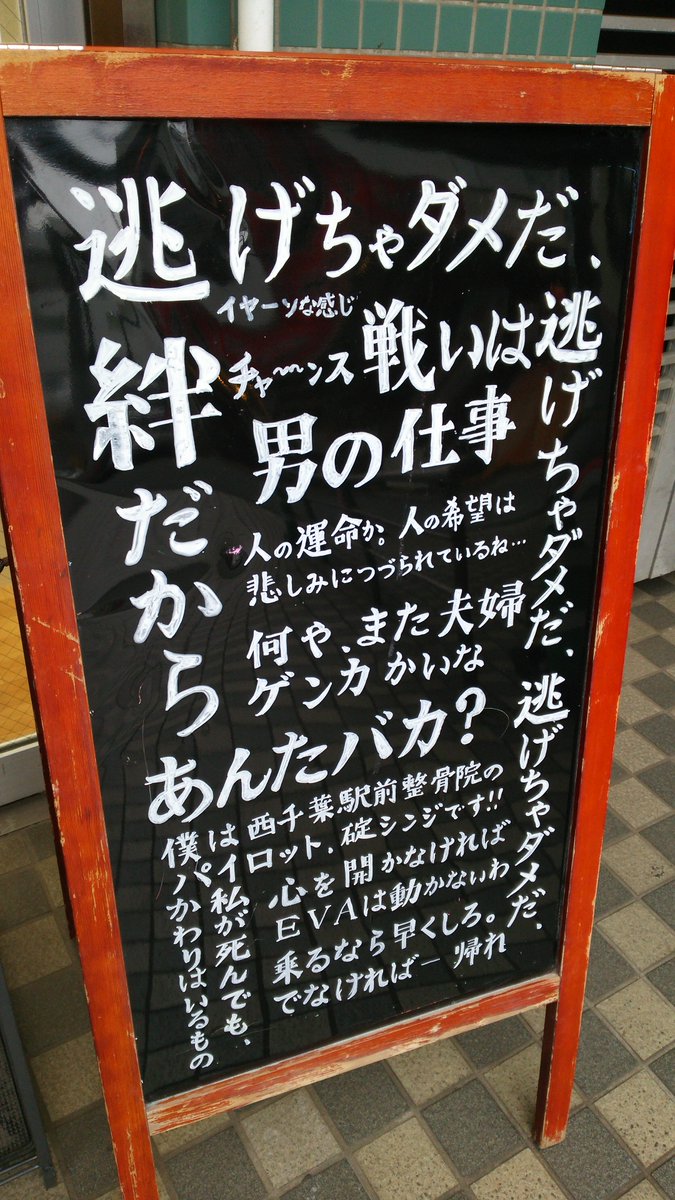 逃げちゃダメだ、
逃げちゃダメだ、逃げちゃダメだ、
イヤーンな感じ
チャ〜〜ンス
戦いは
男の仕事
絆だから
人の運命か。人の希望は
悲しみにつづられているね…
何や、また夫婦
ゲンカかいな
あんたバカ?
僕は西千葉駅前整骨院の
パイロット、碇シンジです!!
心を開かなければ
EVAは動かないわ
乗るなら早くしろ。
でなければ―帰れ
私が死んでも、
かわりはいるもの